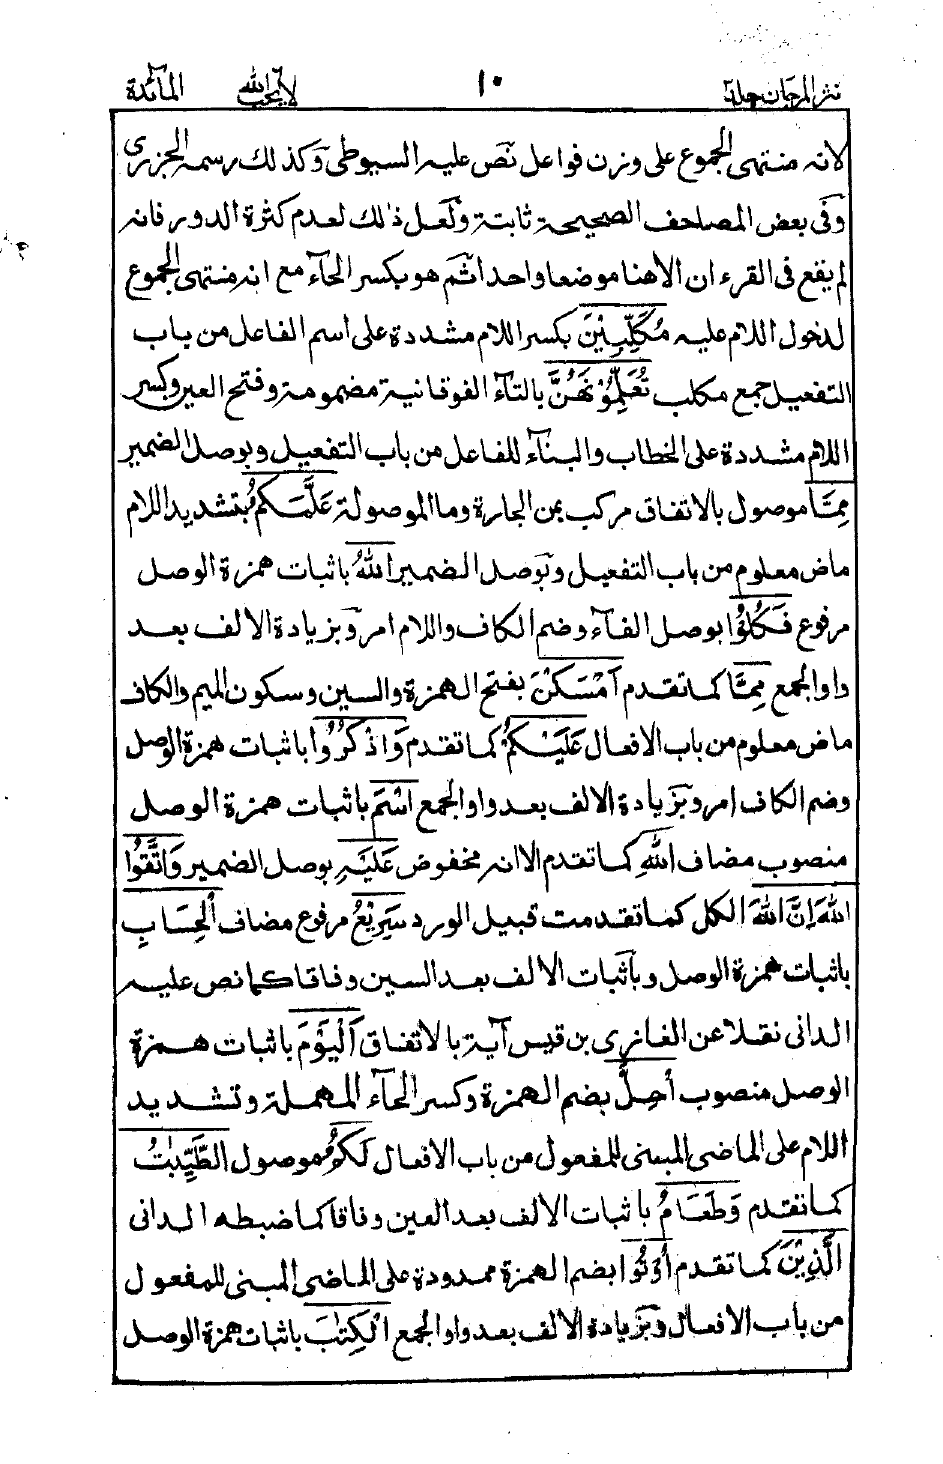 نثر المرجان جلد ٢ ١٠ لا يحب الله المآئدة
لانه منتهى الجموع على وزن فواعل نَصّ عليه السيوطى وَكذلك رسمه الجزرى
وَفى بعض المصاحف الصحيحة ثابتة وَلعل ذلك لعدم كثرة الدور فانه
لم يقع فى القرءان الا هنا موضعا واحدا ثم هو بكسر الحآء مع انه منتهى الجموع
لدخول اللام عليه مُكَلِّبِيْنَ بكسر اللام مشددة على اسم الفاعل من باب
التفعيل جمع مكلب تُعَلِّمُوْنَهُنَّ بالتآء الفوقانية مضمومة وفتح العين وكسر
اللام مشددة على الخطاب والبنآء للفاعل من باب التفعيل وبوصل الضمير
مِمَّا موصول بالاتفاق مركب بمن الجارة وما الموصولة عَلَّمَكُمُ بتشديد اللام
ماض معلوم من باب التفعيل وَبوصل الضمير اللّٰهُ باثبات همزة الوصل
مرفوع فَكُلُوْا بوصل الفآء وضم الكاف واللام امر وَبزيادة الالف بعد
واو الجمع مِمَّا كما تقدم اَمْسَكْنَ بفتح الهمزة والسين وسكون الميم والكاف
ماض معلوم من باب الافعال عَلَيْكُمْ كما تقدم وَاذْكُرُوا باثبات همزة الوصل
وضم الكاف امر وَبزيادة الالف بعد واو الجمع اسْمَ باثبات همزة الوصل
منصوب مضاف اللّٰهِ كما تقدم الا انه مخفوض عَلَيْهِ بوصل الضمير وَاتَّقُوا
اللّٰهَ اِنَّ اللّٰهَ الكل كما تقدمت قبيل الورد سَرِيْعُ مرفوع مضاف الْحِسَابِ
باثبات همزة الوصل وباثبات الالف بعد السين وفاقا كما نص عليه
الدانى نقلا عن الغازى بن قيس آية بالاتفاق اَلْيَوْمَ باثبات همزة
الوصل منصوب اُحِلَّ بضم الهمزة وكسر الحآء المهملة وتشديد
اللام على الماضى المبنى للمفعول من باب الافعال لَكُمُ موصول الطَّيِّبٰتُ
كما تقدم وَطَعَامُ باثبات الالف بعد العين وفاقا كما ضبطه الدانى
الَّذِيْنَ كما تقدم اُوْتُوا بضم الهمزة ممدودة على الماضى المبنى للمفعول
من باب الافعال وَبزيادة الالف بعد واو الجمع الْكِتٰبَ باثبات همزة الوصل